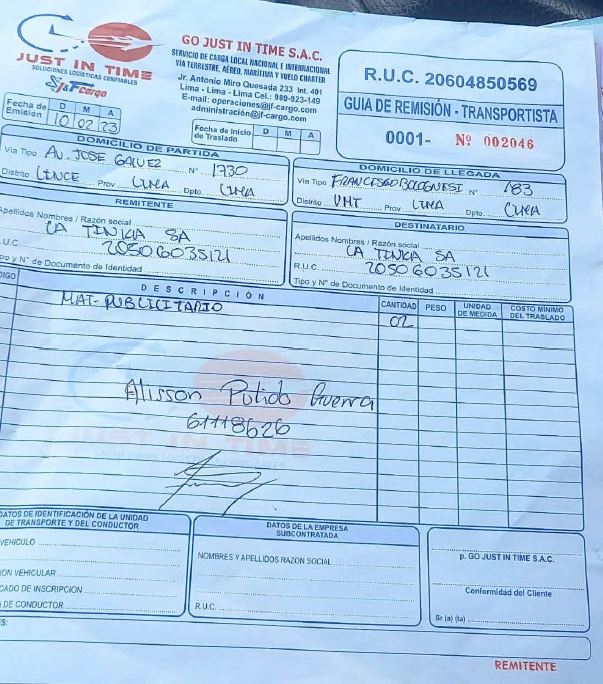 JUST IN TIME
SOLUCIONES LOGÍSTICAS CONFIABLES
SJ&F cargo
GO JUST IN TIME S.A.C.
SERVICIO DE CARGA LOCAL NACIONAL E INTERNACIONAL
VÍA TERRESTRE, AÉREO, MARÍTIMA Y VUELO CHARTER
Jr. Antonio Miro Quesada 233 Int. 401
Lima - Lima - Lima Cel.: 989-923-149
E-mail: operaciones@jf-cargo.com
administración@jf-cargo.com
R.U.C. 20604850569
GUIA DE REMISIÓN - TRANSPORTISTA
0001- Nº 002046
Fecha de Emisión D M A
10 02 23
Fecha de Inicio de Traslado D M A
DOMICILIO DE PARTIDA
Vía Tipo AV. JOSE GALVEZ N° 1730
Distrito LINCE Prov LIMA Dpto. LIMA
DOMICILIO DE LLEGADA
Vía Tipo FRANCESGO BOLOGNESI N° 183
Distrito VMT Prov LIMA Dpto. LIMA
REMITENTE
Apellidos Nombres / Razón social
LA TINKIA SA
.U.C. 20506035121
po y N° de Documento de Identidad
DESTINATARIO
Apellidos Nombres / Razón social
LA TINKIA SA
R.U.C. 20506035121
Tipo y N° de Documento de Identidad
DIGO DESCRIPCION CANTIDAD PESO UNIDAD DE MEDIDA COSTO MÍNIMO DEL TRASLADO
MAT-PUBLICITARIO 02
Alisson Pulido Guerra
61118626
JUST IN TIME
DATOS DE IDENTIFICACIÓN DE LA UNIDAD
DE TRANSPORTE Y DEL CONDUCTOR
VEHICULO
ION VEHICULAR
CADO DE INSCRIPCION
DE CONDUCTOR
DATOS DE LA EMPRESA
SUBCONTRATADA
NOMBRES Y APELLIDOS RAZON SOCIAL
R.U.C.
p. GO JUST IN TIME S.A.C.
Conformidad del Cliente
Sr (a) (ta)
ES:
REMITENTE